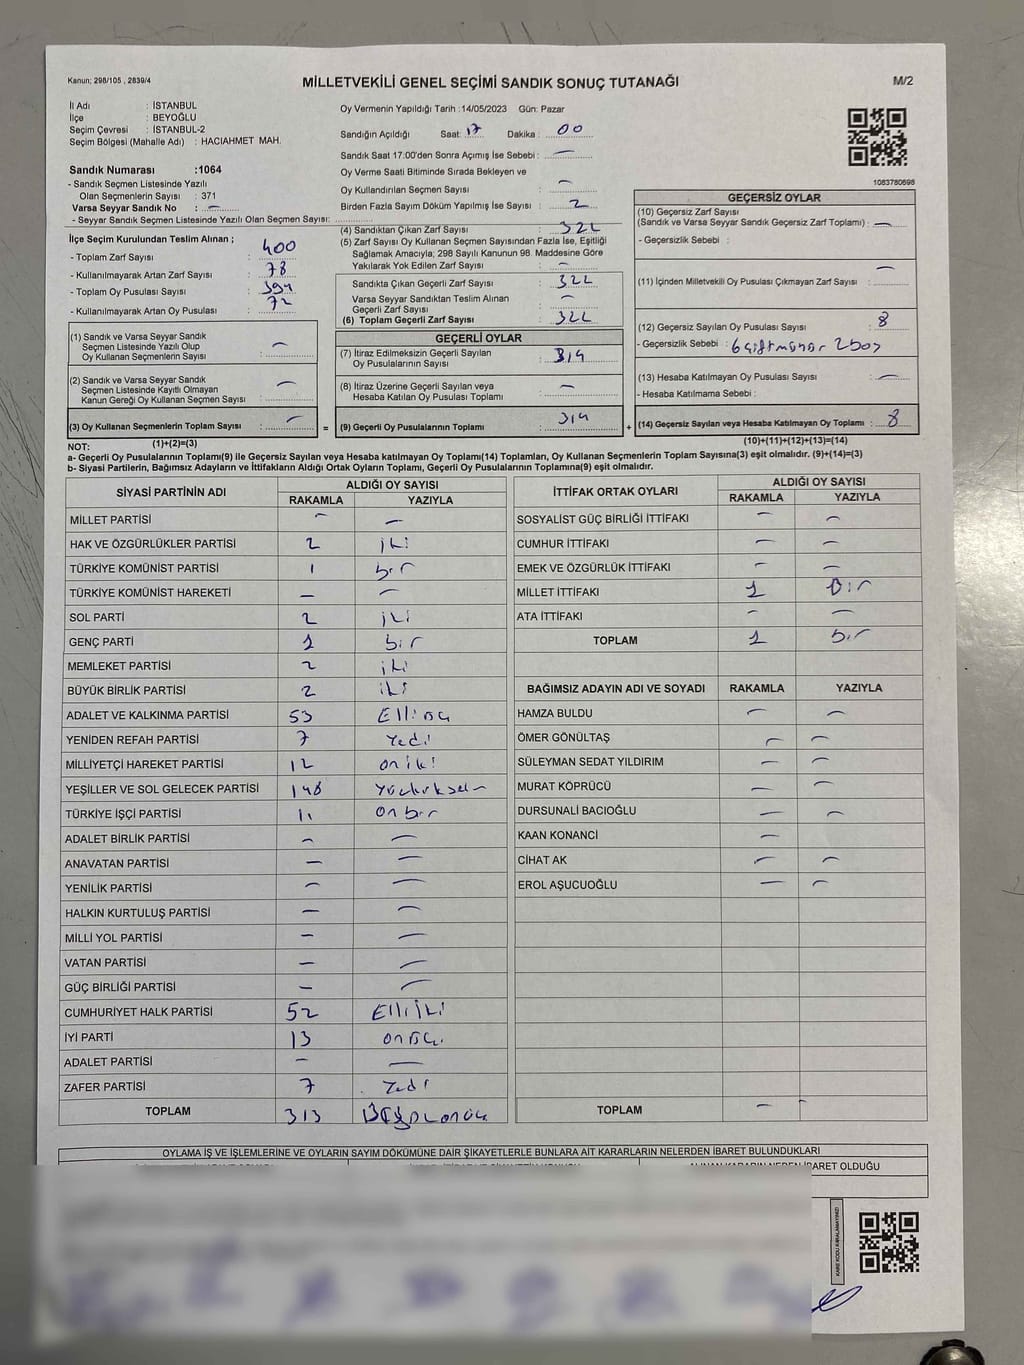 Kanun; 298/105 , 2839/4
MİLLETVEKİLİ GENEL SEÇİMİ SANDIK SONUÇ TUTANAĞI
M/2
İl Adı : İSTANBUL
İlçe : BEYOĞLU
Seçim Çevresi : İSTANBUL-2
Seçim Bölgesi (Mahalle Adı) : HACIAHMET MAH.
Sandık Numarası :1064
- Sandık Seçmen Listesinde Yazılı
Olan Seçmenlerin Sayısı : 371
Varsa Seyyar Sandık No : —
- Seyyar Sandık Seçmen Listesinde Yazılı Olan Seçmen Sayısı:
İlçe Seçim Kurulundan Teslim Alınan ;
- Toplam Zarf Sayısı : 400
- Kullanılmayarak Artan Zarf Sayısı : 78
- Toplam Oy Pusulası Sayısı : 394
- Kullanılmayarak Artan Oy Pusulası : 72
(1) Sandık ve Varsa Seyyar Sandık
Seçmen Listesinde Yazılı Olup
Oy Kullanan Seçmenlerin Sayısı : —
(2) Sandık ve Varsa Seyyar Sandık
Seçmen Listesinde Kayıtlı Olmayan
Kanun Gereği Oy Kullanan Seçmen Sayısı : —
(3) Oy Kullanan Seçmenlerin Toplam Sayısı : —
(1)+(2)=(3)
Oy Vermenin Yapıldığı Tarih :14/05/2023 Gün: Pazar
Sandığın Açıldığı Saat: 17 Dakika : 00
Sandık Saat 17:00'den Sonra Açımış İse Sebebi : —
Oy Verme Saati Bitiminde Sırada Bekleyen ve
Oy Kullandırılan Seçmen Sayısı : —
Birden Fazla Sayım Döküm Yapılmış İse Sayısı : 2
(4) Sandıktan Çıkan Zarf Sayısı : 322
(5) Zarf Sayısı Oy Kullanan Seçmen Sayısından Fazla İse, Eşitliği
Sağlamak Amacıyla; 298 Sayılı Kanunun 98. Maddesine Göre
Yakılarak Yok Edilen Zarf Sayısı : —
Sandıkta Çıkan Geçerli Zarf Sayısı : 322
Varsa Seyyar Sandıktan Teslim Alınan
Geçerli Zarf Sayısı : —
(6) Toplam Geçerli Zarf Sayısı : 322
GEÇERLİ OYLAR
(7) İtiraz Edilmeksizin Geçerli Sayılan
Oy Pusulasının Sayısı : 314
(8) İtiraz Üzerine Geçerli Sayılan veya
Hesaba Katılan Oy Pusulası Toplamı : —
= (9) Geçerli Oy Pusulalarının Toplamı : 314
1083780698
GEÇERSİZ OYLAR
(10) Geçersiz Zarf Sayısı
(Sandık ve Varsa Seyyar Sandık Geçersiz Zarf Toplamı) : —
- Geçersizlik Sebebi :
(11) İçinden Milletvekili Oy Pusulası Çıkmayan Zarf Sayısı : —
(12) Geçersiz Sayılan Oy Pusulası Sayısı : 8
- Geçersizlik Sebebi : 6 çift mühür 2 boş
(13) Hesaba Katılmayan Oy Pusulası Sayısı : —
- Hesaba Katılmama Sebebi :
+ (14) Geçersiz Sayılan veya Hesaba Katılmayan Oy Toplamı : 8
(10)+(11)+(12)+(13)=(14)
NOT:
a- Geçerli Oy Pusulalarının Toplamı(9) ile Geçersiz Sayılan veya Hesaba katılmayan Oy Toplamı(14) Toplamları, Oy Kullanan Seçmenlerin Toplam Sayısına(3) eşit olmalıdır. (9)+(14)=(3)
b- Siyasi Partilerin, Bağımsız Adayların ve İttifakların Aldığı Ortak Oyların Toplamı, Geçerli Oy Pusulalarının Toplamına(9) eşit olmalıdır.
SİYASİ PARTİNİN ADI ALDIĞI OY SAYISI
RAKAMLA YAZIYLA
MİLLET PARTİSİ — —
HAK VE ÖZGÜRLÜKLER PARTİSİ 2 iki
TÜRKİYE KOMÜNİST PARTİSİ 1 bir
TÜRKİYE KOMÜNİST HAREKETİ — —
SOL PARTİ 2 iki
GENÇ PARTİ 1 bir
MEMLEKET PARTİSİ 2 iki
BÜYÜK BİRLİK PARTİSİ 2 iki
ADALET VE KALKINMA PARTİSİ 53 Elliüç
YENİDEN REFAH PARTİSİ 7 Yedi
MİLLİYETÇİ HAREKET PARTİSİ 12 oniki
YEŞİLLER VE SOL GELECEK PARTİSİ 148
TÜRKİYE İŞÇİ PARTİSİ 11 onbir
ADALET BİRLİK PARTİSİ — —
ANAVATAN PARTİSİ — —
YENİLİK PARTİSİ — —
HALKIN KURTULUŞ PARTİSİ — —
MİLLİ YOL PARTİSİ — —
VATAN PARTİSİ — —
GÜÇ BİRLİĞİ PARTİSİ — —
CUMHURİYET HALK PARTİSİ 52 Elliiki
İYİ PARTİ 13 onüç
ADALET PARTİSİ — —
ZAFER PARTİSİ 7 Yedi
TOPLAM 313 üçyüzonüç
İTTİFAK ORTAK OYLARI ALDIĞI OY SAYISI
RAKAMLA YAZIYLA
SOSYALİST GÜÇ BİRLİĞİ İTTİFAKI — —
CUMHUR İTTİFAKI — —
EMEK VE ÖZGÜRLÜK İTTİFAKI — —
MİLLET İTTİFAKI 1 Bir
ATA İTTİFAKI — —
TOPLAM 1 bir
BAĞIMSIZ ADAYIN ADI VE SOYADI RAKAMLA YAZIYLA
HAMZA BULDU — —
ÖMER GÖNÜLTAŞ — —
SÜLEYMAN SEDAT YILDIRIM — —
MURAT KÖPRÜCÜ — —
DURSUNALİ BACIOĞLU — —
KAAN KONANCİ —
CİHAT AK — —
EROL AŞUCUOĞLU — —
TOPLAM —
OYLAMA İŞ VE İŞLEMLERİNE VE OYLARIN SAYIM DÖKÜMÜNE DAİR ŞİKAYETLERLE BUNLARA AİT KARARLARIN NELERDEN İBARET BULUNDUKLARI
ALINAN KARARIN NEDEN İBARET OLDUĞU
KARE KODU KARALAMAYINIZ!